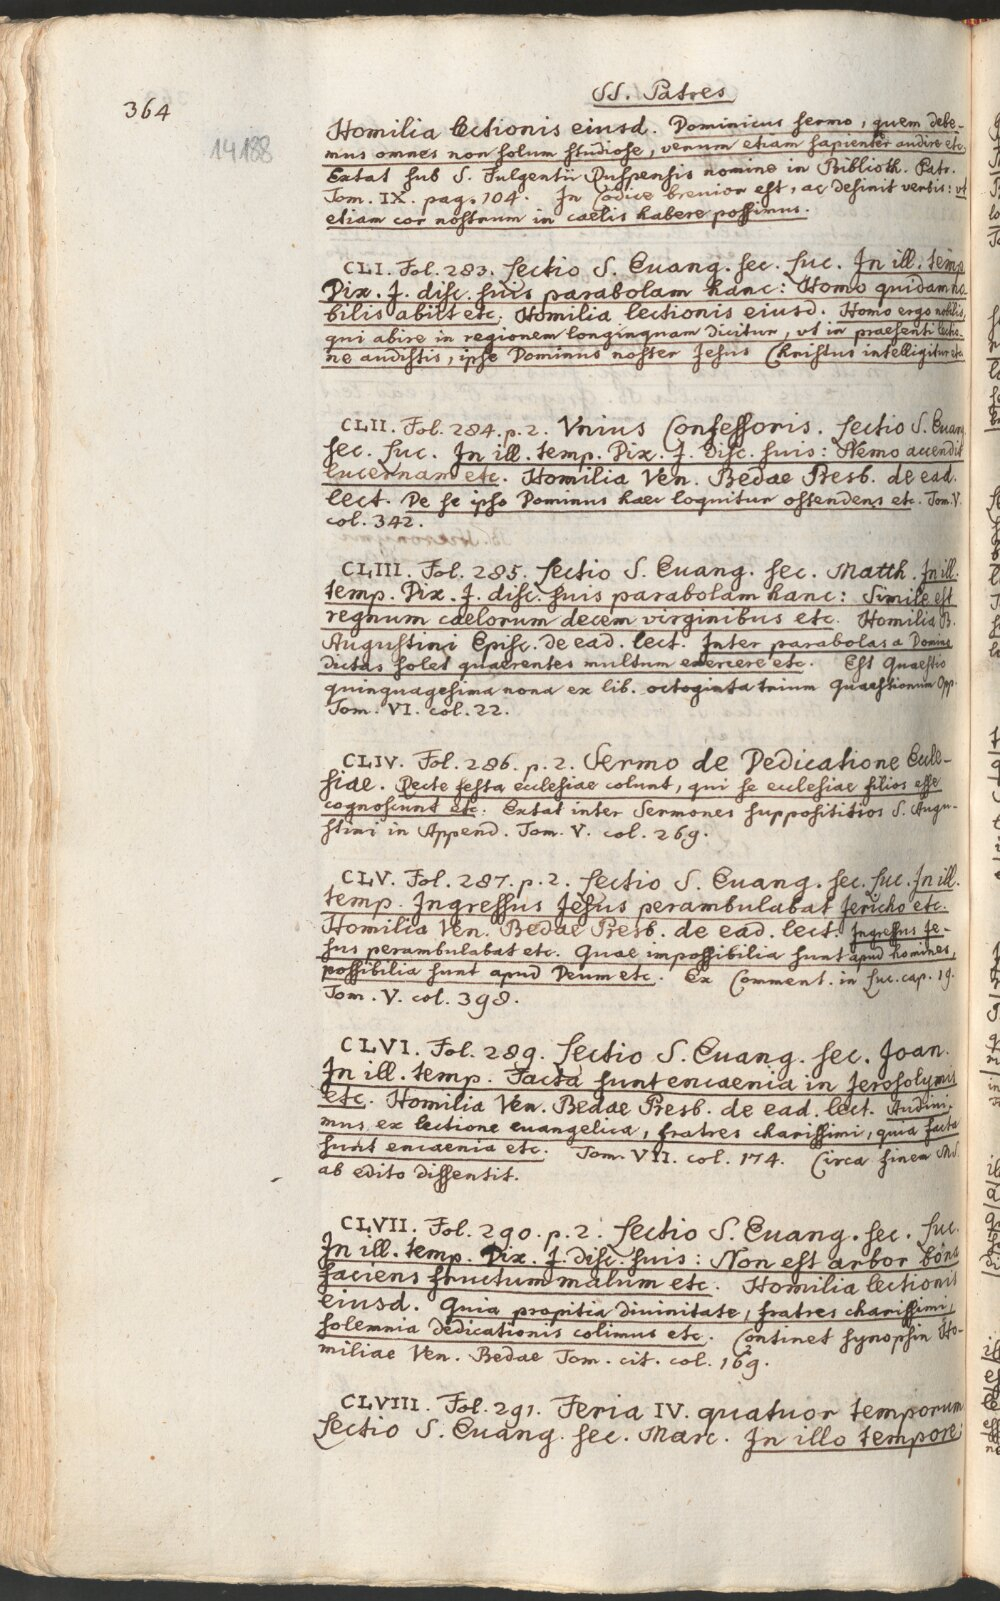 364
SS. Patres
14188
Homilia lectionis eiusd. Dominicus sermo, quem debe-
mus omnes non solum studiose, verum etiam sapienter audire etc.
Extat sub S. Fulgentii Ruspensis nomine in Biblioth. Patr.
Tom. IX. pag. 104. In Codice brevior est, ac desinit verbis: vt
etiam cor nostrum in caelis habere possimus.
CLI. Fol. 283. Lectio S. Euang. sec. Luc. In ill. temp.
Dix. J. disc. suis parabolam hanc: Homo quidam no
bilis abiit etc. Homilia lectionis eiusd. Homo ergo nobilis,
qui abire in regionem longinquam dicitur, vt in praesenti lectio-
ne audistis, ipse Dominus noster Jesus Christus intelligitur etc.
CLII. Fol. 284. p. 2. Vnius Confessoris. Lectio S. Euang.
sec. Luc. In ill. temp. Dix. J. disc. suis: Nemo accendit
lucernam etc. Homilia Ven. Bedae Presb. de ead.
lect. De se ipso Dominus haec loquitur ostendens etc. Tom. V.
col. 342.
CLIII. Fol. 285. Lectio S. Euang. sec. Matth. In ill.
temp. Dix. J. disc. suis parabolam hanc: Simile est
regnum caelorum decem virginibus etc. Homilia B.
Augustini Episc. de ead. lect. Inter parabolas a Domino
dictas solet quaerentes multum exercere etc. Est Quaestio
quinquagesima nona ex lib. octoginta trium Quaestionum Opp.
Tom. VI. col. 22.
CLIV. Fol. 286. p. 2. Sermo de Dedicatione Eccle-
siae. Recte festa ecclesiae colunt, qui se ecclesiae filios esse
cognoscunt etc. Extat inter Sermones supposititios S. Augu-
stini in Append. Tom. V. col. 269.
CLV. Fol. 287. p. 2. Lectio S. Euang. sec. Luc. In ill.
temp. Ingressus Jesus perambulabat Jericho etc.
Homilia Ven. Bedae Presb. de ead. lect. Ingressus Je-
sus perambulabat etc. Quae impossibilia sunt apud homines,
possibilia sunt apud Deum etc. Ex Comment. in Luc. cap. 19.
Tom. V. col. 398.
CLVI. Fol. 289. Lectio S. Euang. sec. Joan.
In ill. temp. Facta sunt encaenia in Jerosolymis
etc. Homilia Ven. Bedae Presb. de ead. lect. Audivi-
mus ex lectione euangelica, fratres charissimi, quia facta
sunt encaenia etc. Tom. VII. col. 174. Circa finem MS.
ab edito dissentit.
CLVII. Fol. 290. p. 2. Lectio S. Euang. sec. Luc.
In ill. temp. Dix. J. disc. suis: Non est arbor bona
faciens fructum malum etc. Homilia lectionis
eiusd. Quia propitia divinitate, fratres charissimi,
solemnia dedicationis colimus etc. Continet synopsin Ho-
miliae Ven. Bedae Tom. cit. col. 169.
CLVIII. Fol. 291. Feria IV. quatuor temporum
Lectio S. Euang. sec. Marc. In illo tempore: